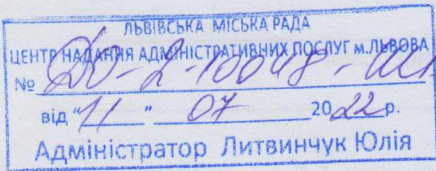 ЛЬВІВСЬКА МІСЬКА РАДА
ЦЕНТР НАДАННЯ АДМІНІСТРАТИВНИХ ПОСЛУГ м.ЛЬВОВА
№ 2-10048
від "11" 07 2022р.
Адміністратор Литвинчук Юлія